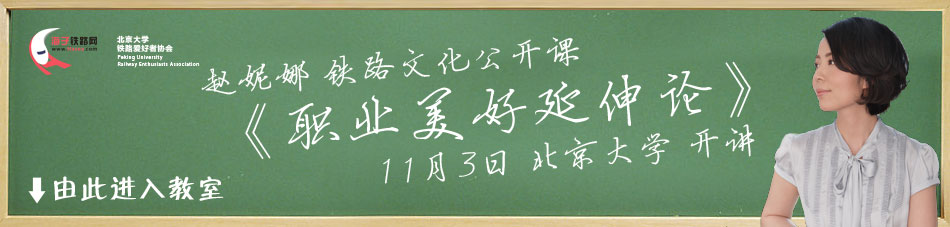 北京大学
铁路爱好者协会
Peking University
Railway Enthusiants Association
赵妮娜 铁路文化公开课
《职业美好延伸论》
11月3日 北京大学 开讲
由此进入教室